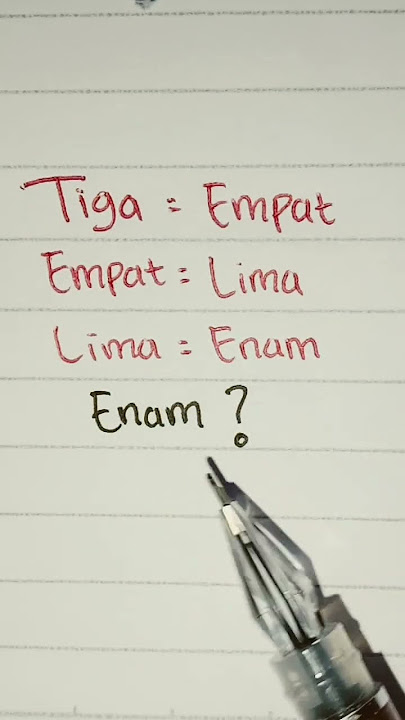 Tiga = Empat
Empat = Lima
Lima = Enam
Enam ?